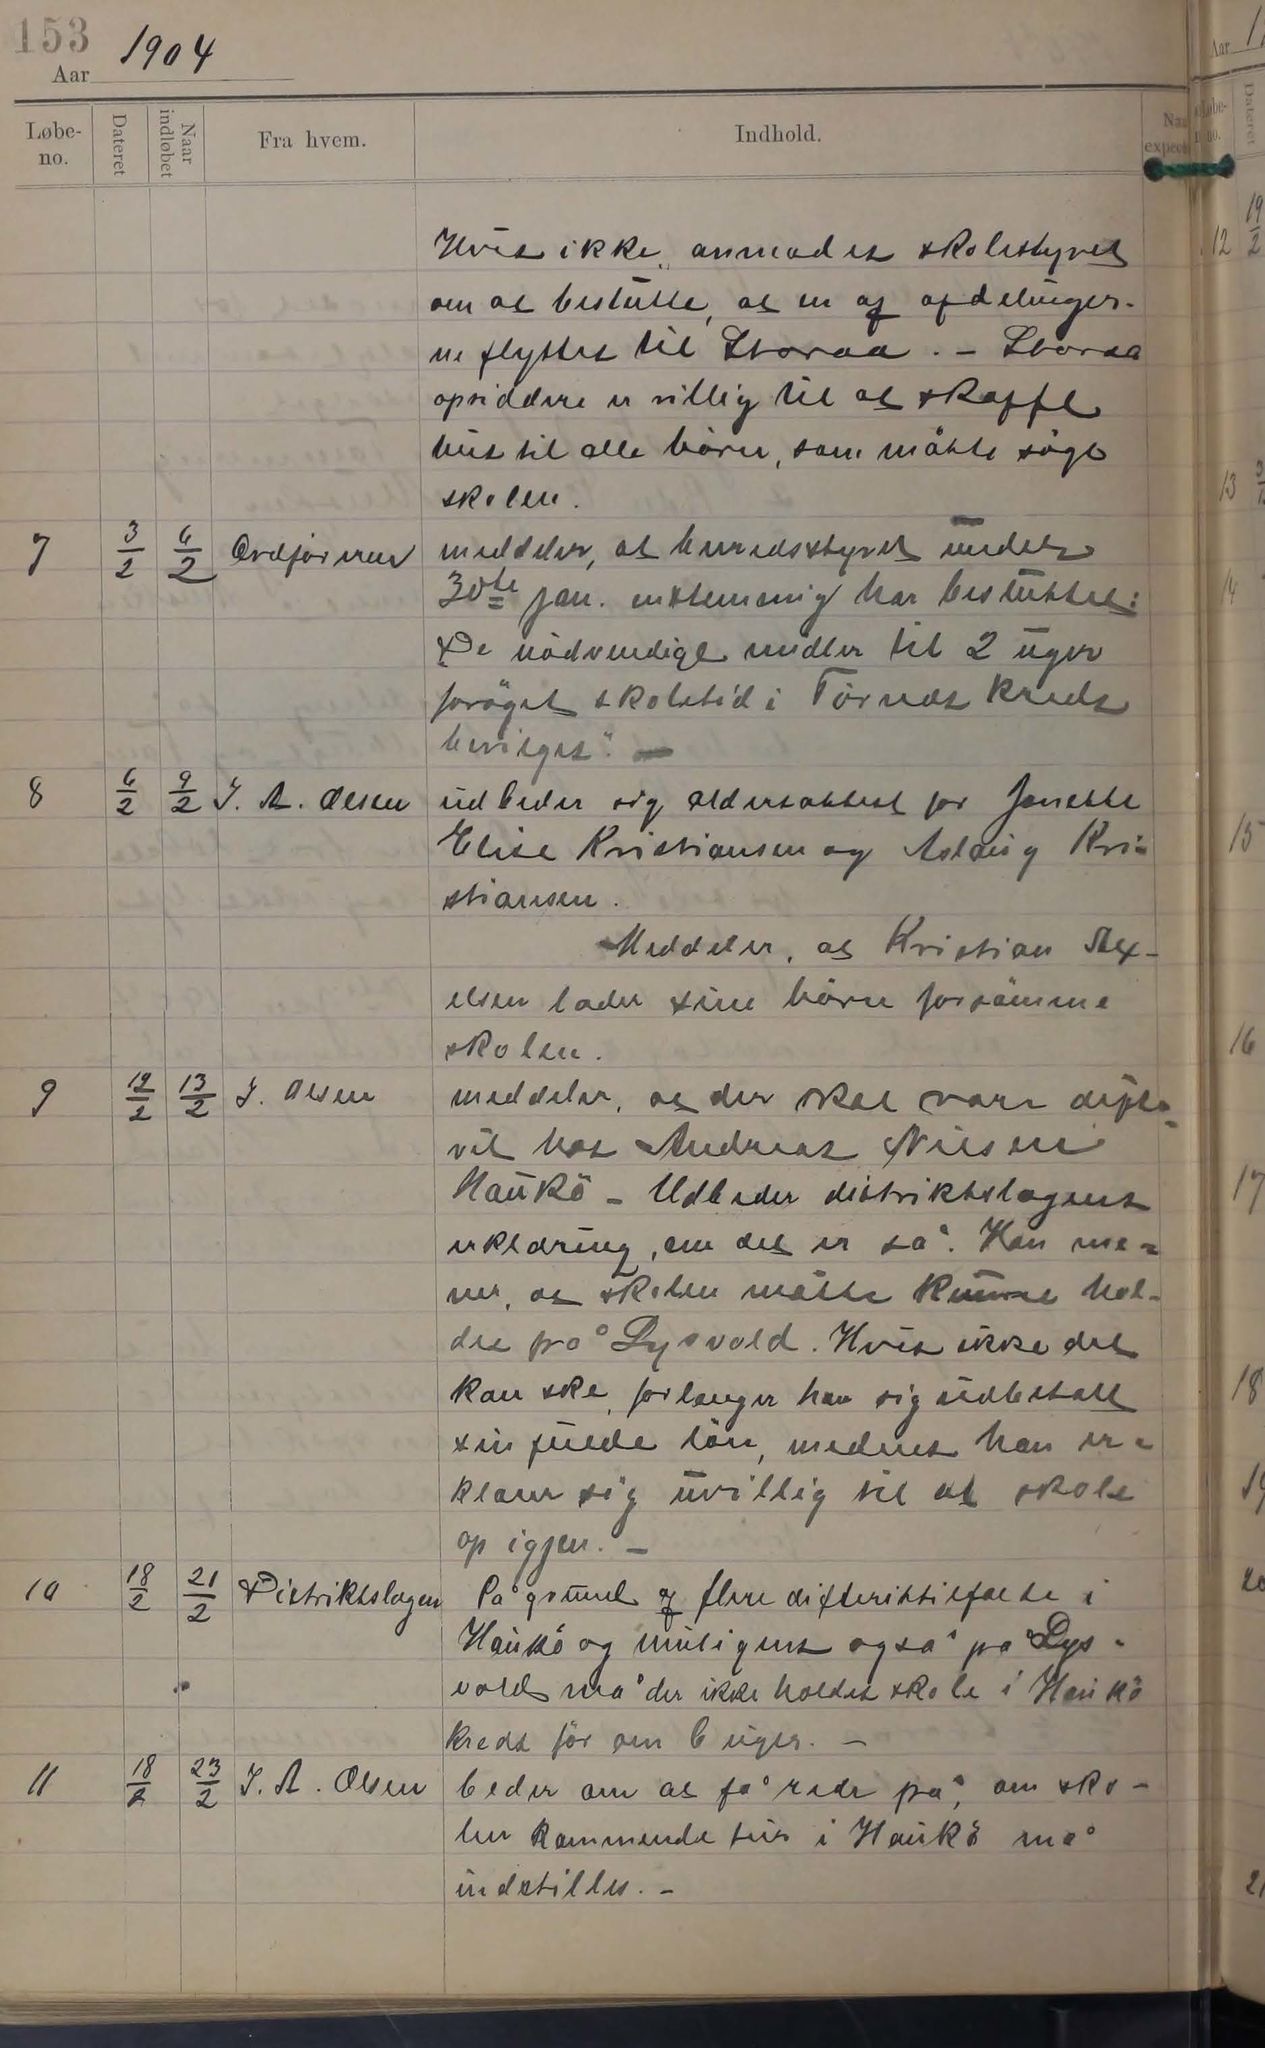 153
Aar 1904
Løbe-no. Dateret Naar indløbet Fra hvem. Indhold. Naar exped
Hvis ikke, anmodes skolestyret
om at beslutte, at en af afdelinger-
ne flyttes til Storaa. - Storaa
opsiddere er villig til at skaffe
hus til alle börn, som måtte söge
skolen.
7 3/2 6/2 Ordföreren meddeler, at herredsstyret under
30te jan. enstemmig har besluttet:
"De nödvendige midler til 2 uger
foröget skoletid i Törnes kreds
bevilges". -
8 6/2 9/2 J. A. Olsen udbeder sig aldersattest for Janette
Elise Kristiansen og Aslaug Kri-
stiansen.
Meddeler, at Kristian Ax-
elsen lader sine börn forsömme
skolen.
9 12/2 13/2 J. Olsen meddeler, at der skal være difte-
rit hos Andreas Nilsen
Haukö - Udbeder distriktslægens
erklæring, om det er så. Han me-
ner, at skolen måtte kunne hol-
des på Lysvold. Hvis ikke det
kan ske, forlanger han sig udbetalt
sin fulde lön, medens han er-
klærer sig uvillig til at skole
op igjen. -
10 18/2 21/2 Distriktslægen På grund af flere difteritilfælde i
Haukö og muligens også på Lys-
vold må der ikke holdes skole i Haukö
kreds för om 6 uger. -
11 18/2 23/2 J. A. Olsen beder om at få rede på, om sko-
len kommende tur i Haukö må
indstilles. -
Aar 1
Løbe-no. Dateret
12 19/2
13
14
15
16
17
18
19
20
21